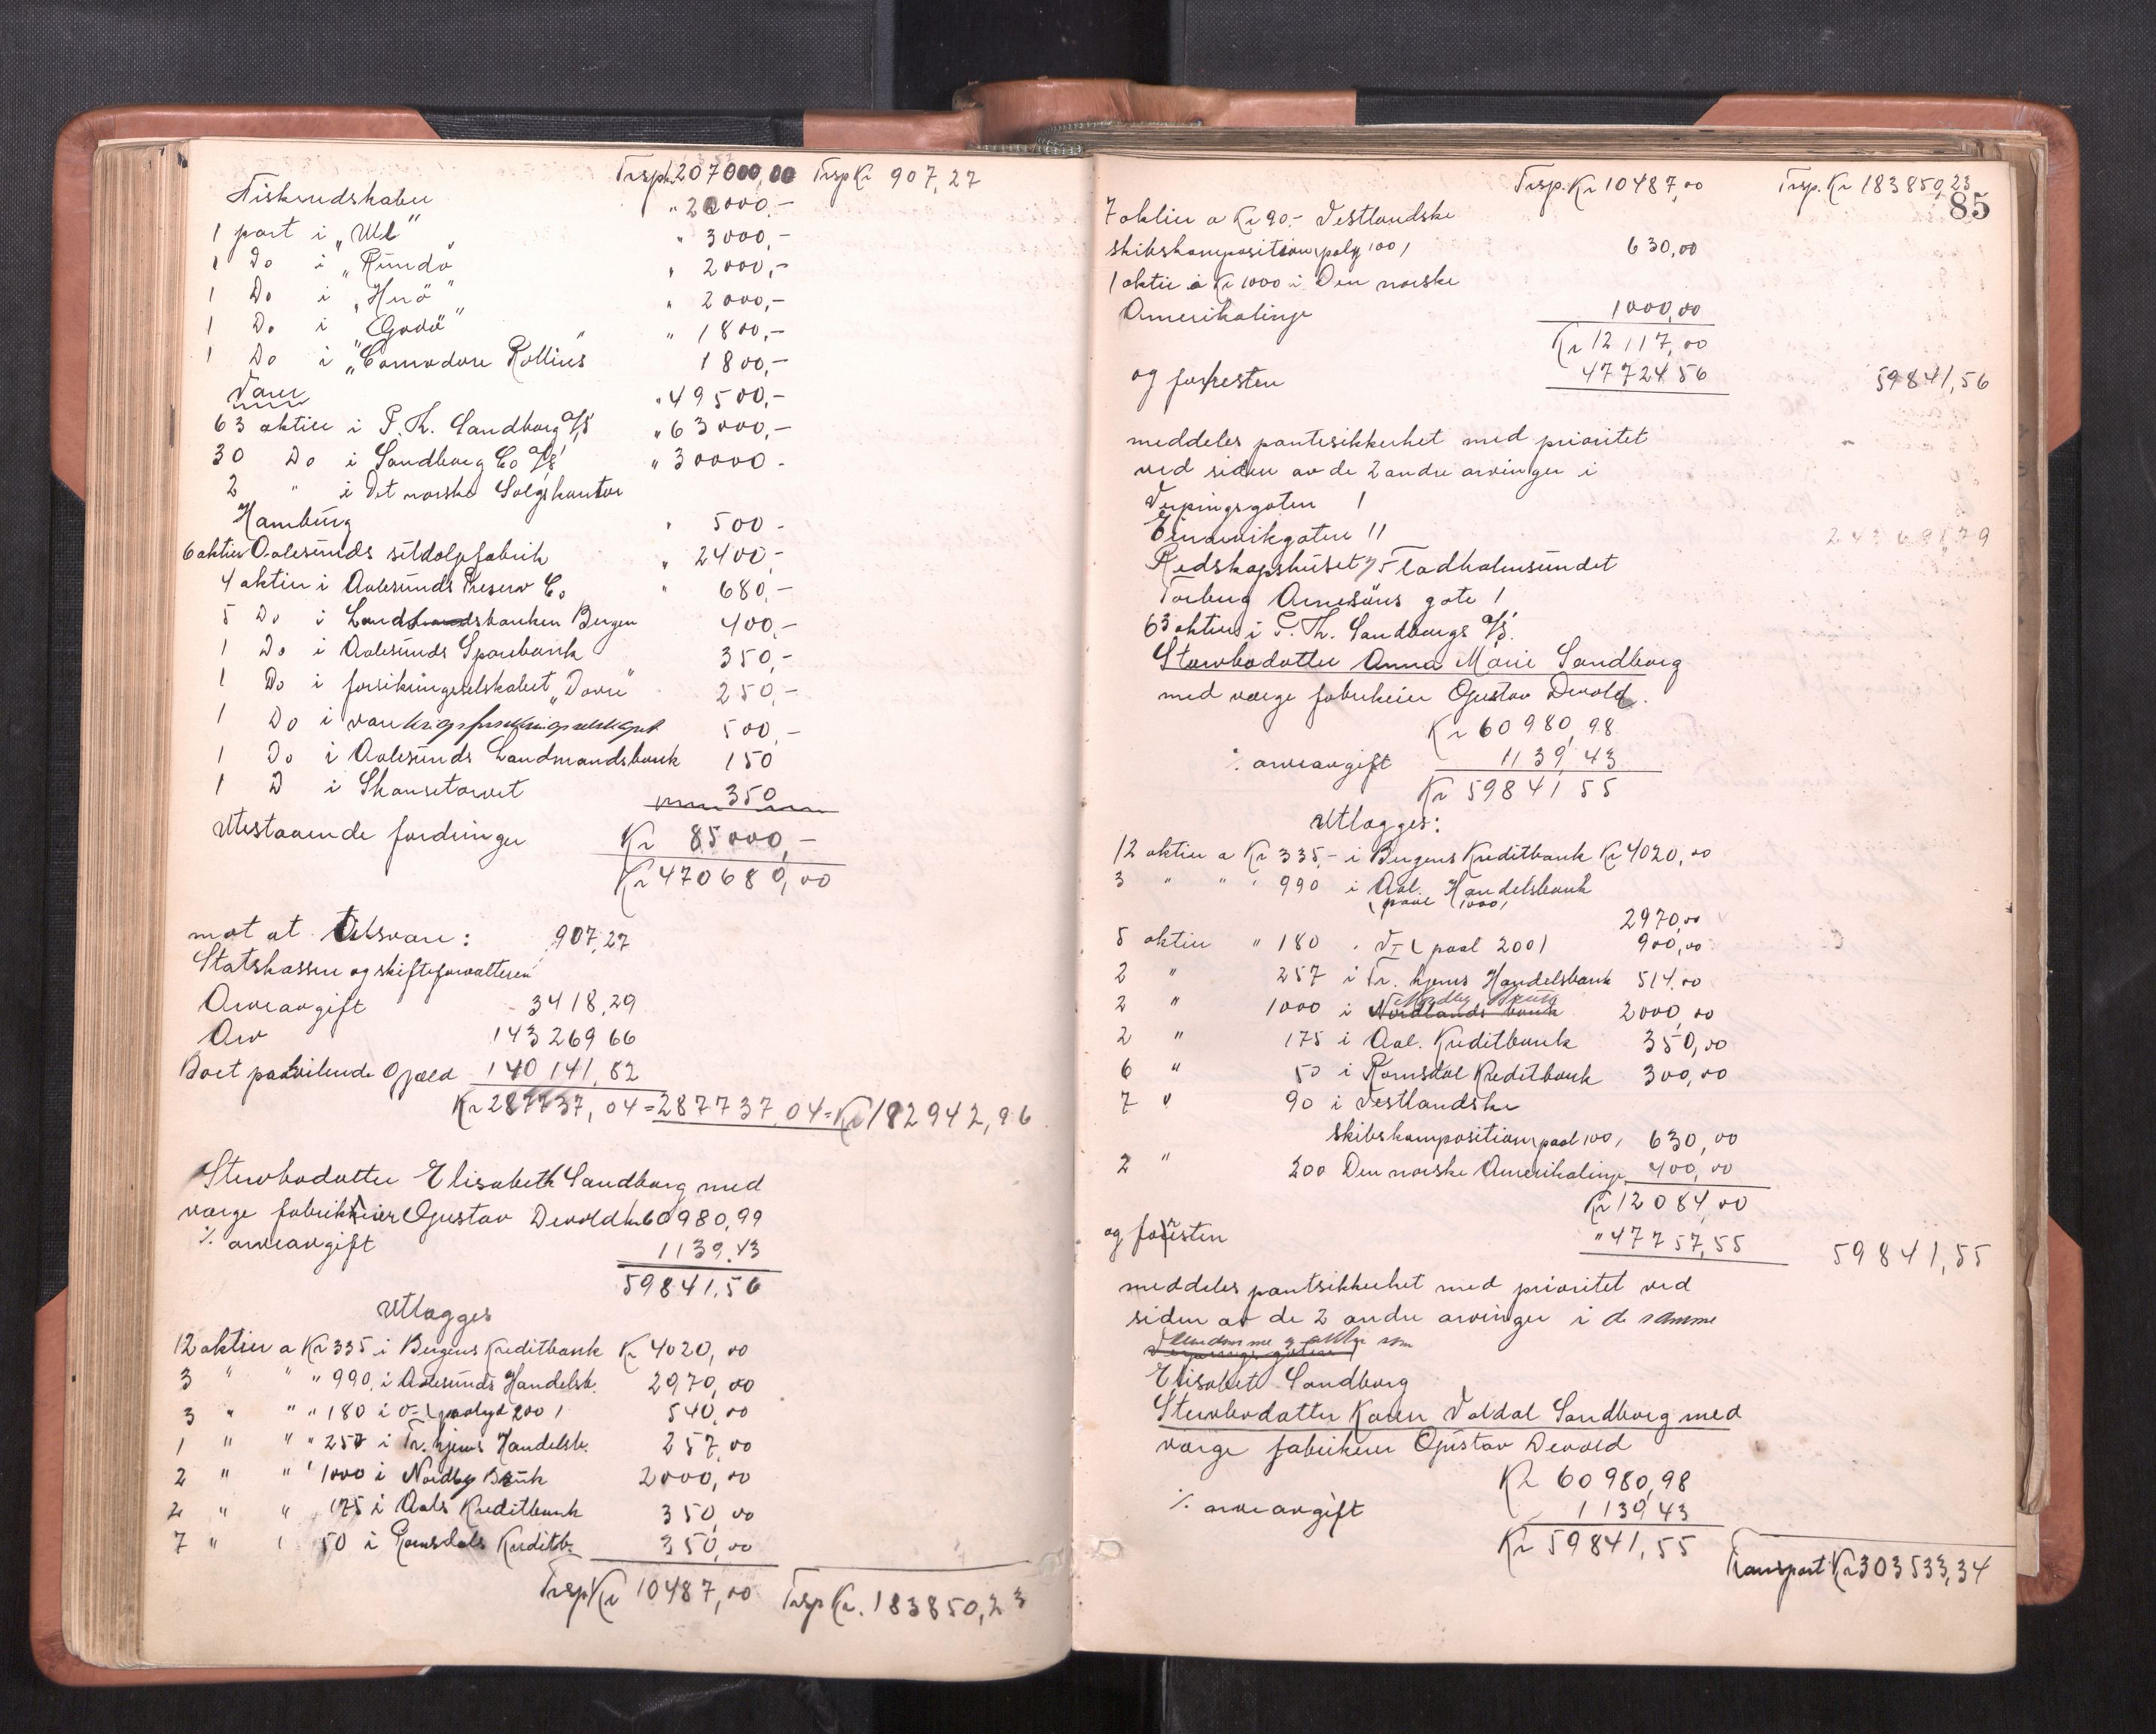 Trsp Kr 207000,00 Trsp Kr 907,27
Fiskeredskaber " 20000,-
1 part i „Ull" " 3000,-
1 Do i „Rundö" " 2000,-
1 Do i „Herö" " 2000,-
1 Do i „Godö" " 1800,-
1 Do i „Comodore Rollins" 1800,-
Varer " 49500,-
63 aktier i P. Th. Sandborg A/S " 63000,-
30 Do i Sandborg & Co A/S " 30000 -
2 " i Det norske Salgskontor
Hamburg " 500 -
6 aktier Aalesunds sildoljefabrik " 2400,-
4 aktier i Aalesunds Preserv Co " 680,-
5 Do i Landmandsbanken Bergen 400,-
1 Do i Aalesunds Sparebank 350,-
1 Do i forsikringsselskabet „Dovre" 250,-
1 Do i varekrigsforsikringsselskapet 500,-
1 Do i Aalesunds Landmandsbank 150
1 D i Skansetorvet 350
Utestaaende fordringer Kr 85000,-
Kr 470680,00
mot at tilsvare: 907,27
Statskassen og skifteforvalteren
Arveavgift 3418,29
Arv 143269 66
Boet paahvilende Gjæld 140141,82
Kr 287737,04 = 287737,04 = Kr 182942,96
Stervbodatter Elisabeth Sandborg med
værge fabrikeier Gustav Devold kr 60980,99
% arveavgift 1139.43
59841,56
Utlægges
12 aktier a Kr 335 i Bergens Kreditbank Kr 4020,00
3 " " " 990, i Aalesunds Handelsb. 2970,00
3 " " " 180 i v- (paalyd 200) 540,00
1 " " " 257 i Tr.hjems Handelsb. 257,00
2 " " " 1000 i Nordbg Bruk 2000,00
2 " " 175 i Aals Kreditbank 350,00
7 " " 50 i Romsdals Kreditb. 350,00
Trsp Kr 10487,00 Trsp Kr. 183850,23
Trsp. Kr 10487,00 Trsp. Kr 183850,23
85
7 aktier a Kr 90.- Vestlandske
skibskomposition (paalyd 100) 630,00
1 aktie a Kr 1000 i Den norske
Amerikalinje 1000,00
Kr 12117,00
og for resten 47724 56 59841,56
meddeles pantesikkerhet med prioritet
ved siden av de 2 andre arvinger i
Verpingsgaten 1
Einarvikgaten 11
Redskapshuset Fladholmsundet
Torberg Arnesöns gate 1
63 aktier i P. Th. Sandborgs A/S.
Stervbodatter Anna Marie Sandborg
med værge fabrikeier Gustav Devold.
Kr 60980,98
% arveavgift 1139,43
Kr 59841 55
Utlægges:
12 aktier a Kr 335,- i Bergens Kreditbank Kr 4020,00
3 " " " 990 i Aal. Handelsbank
(paal 1000)
2970,00
5 aktier " 180 " (paal 200) 900,00
2 " 257 i Tr.hjems Handelsbank 514,00
Nordbg Bruk
2 " 1000 i Nordlands bank 2000,00
2 " 175 i Aal. Kreditbank 350,00
6 " 50 i Romsdal Kreditbank 300,00
7 " 90 i Vestlandske
skibskomposition (paal 100) 630,00
2 " 200 Den norske Amerikalinje 400,00
Kr 12084,00
og for resten " 47757,55 59841,55
meddeles pantsikkerhet med prioritet ved
siden av de 2 andre arvinger i de samme
eiendomme og aktier som
Verpingsgaten
Elisabeth Sandborg
Stervbodatter Karen Valdal Sandborg med
værge fabrikeier Gustav Devold
Kr 60980,98
% arveavgift 1139,43
Kr 59841,55 Transport Kr 303533,34